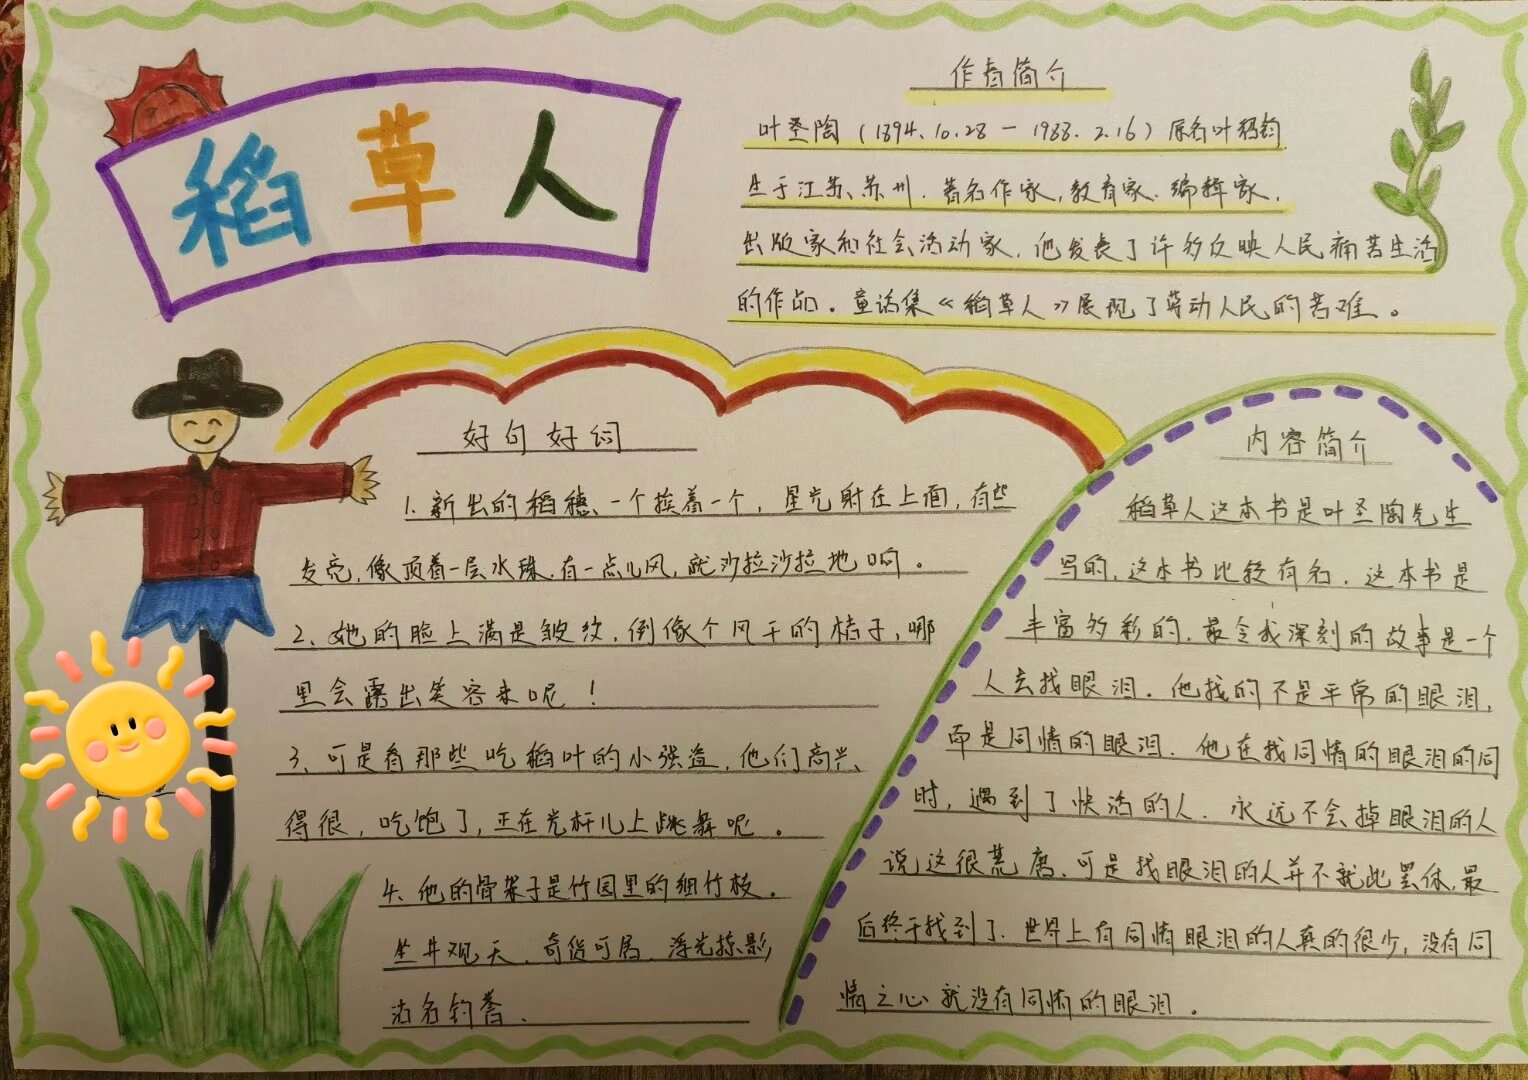 稻草人
作者简介
叶圣陶(1894.10.28-1988.2.16)原名叶绍钧
生于江苏、苏州.著名作家,教育家.编辑家.
出版家和社会活动家.他发表了许多反映人民痛苦生活
的作品。童话集《稻草人》展现了劳动人民的苦难。
好句好词
1.新出的稻穗、一个挨着一个,星光射在上面,有些
发亮,像顶着一层水珠.有一点儿风,就沙拉沙拉地响。
2、她的脸上满是皱纹,倒像个风干的桔子,哪
里会露出笑容来呢!
3、可是看那些吃稻叶的小强盗,他们高兴
得很,吃饱了,正在光杆儿上跳舞呢。
4、他的骨架子是竹园里的细竹枝.
坐井观天、奇货可居、浮光掠影,
沽名钓誉.
内容简介
稻草人这本书是叶圣陶先生
写的,这本书比较有名.这本书是
丰富多彩的,最令我深刻的故事是一个
人去找眼泪.他找的不是平常的眼泪,
而是同情的眼泪.他在找同情的眼泪的同
时,遇到了快活的人.永远不会掉眼泪的人
说这很荒唐、可是找眼泪的人并不就此罢休,最
后终于找到了.世界上有同情眼泪的人真的很少,没有同
情之心就没有同情的眼泪。